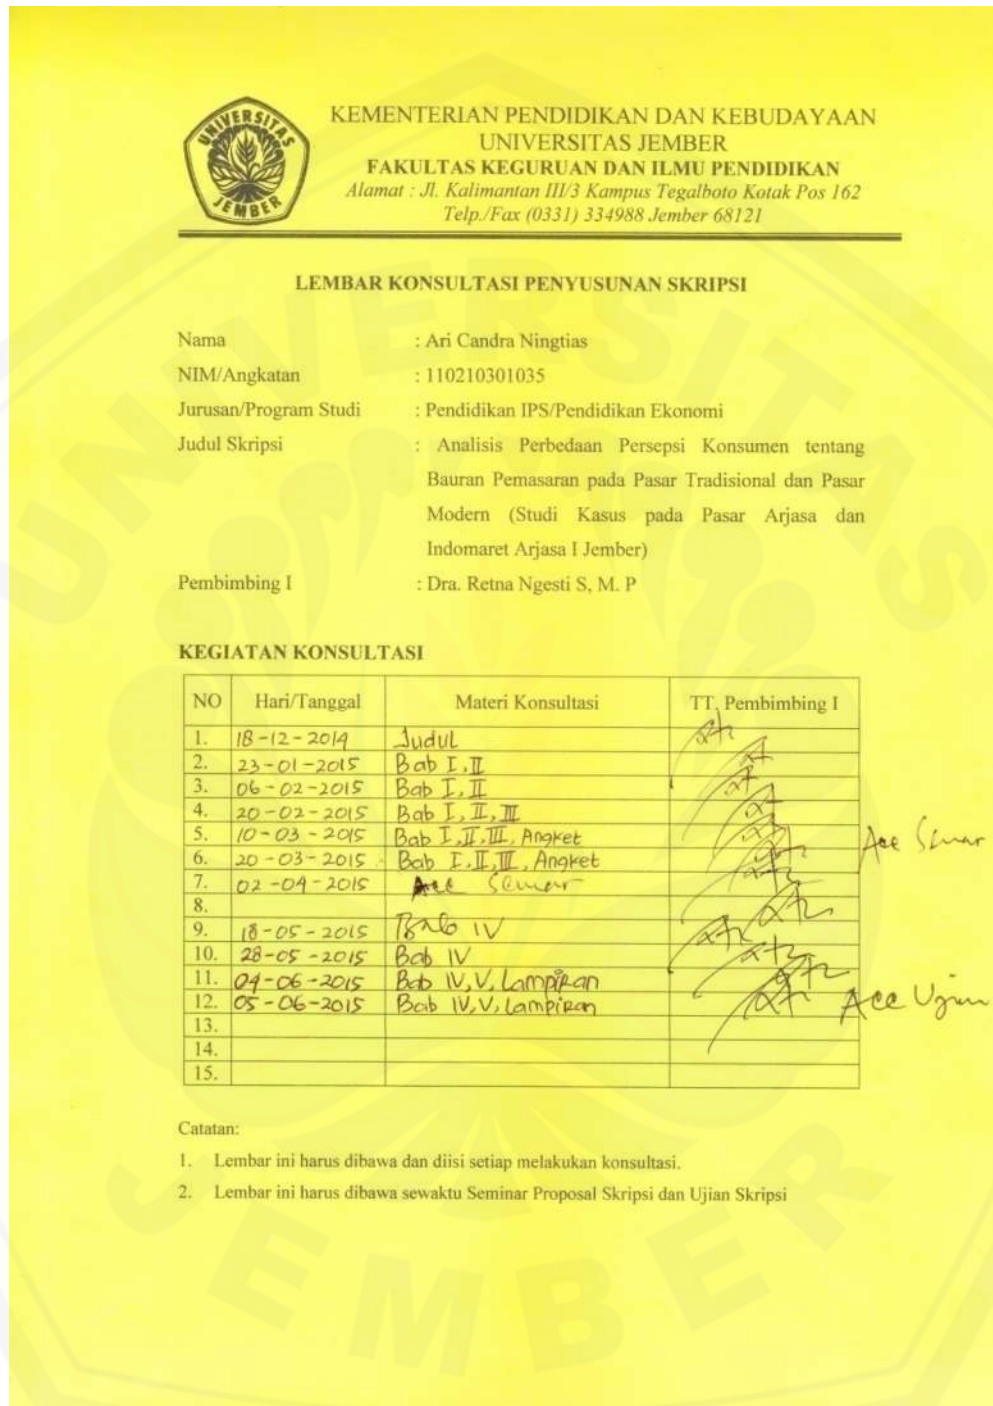 UNIVERSITAS
JEMBER
KEMENTERIAN PENDIDIKAN DAN KEBUDAYAAN
UNIVERSITAS JEMBER
FAKULTAS KEGURUAN DAN ILMU PENDIDIKAN
Alamat : Jl. Kalimantan III/3 Kampus Tegalboto Kotak Pos 162
Telp./Fax (0331) 334988 Jember 68121
LEMBAR KONSULTASI PENYUSUNAN SKRIPSI
Nama : Ari Candra Ningtias
NIM/Angkatan : 110210301035
Jurusan/Program Studi : Pendidikan IPS/Pendidikan Ekonomi
Judul Skripsi : Analisis Perbedaan Persepsi Konsumen tentang
Bauran Pemasaran pada Pasar Tradisional dan Pasar
Modern (Studi Kasus pada Pasar Arjasa dan
Indomaret Arjasa I Jember)
Pembimbing I : Dra. Retna Ngesti S, M. P
KEGIATAN KONSULTASI
NO Hari/Tanggal Materi Konsultasi TT. Pembimbing I
1. 18-12-2014 Judul
2. 23-01-2015 Bab I, II
3. 06-02-2015 Bab I, II
4. 20-02-2015 Bab I, II, III
5. 10-03-2015 Bab I, II, III, Angket
6. 20-03-2015 Bab I, II, III, Angket
7. 02-04-2015 Acc
8.
9. 18-05-2015 Bab IV
10. 28-05-2015 Bab IV
11. 04-06-2015 Bab IV, V, Lampiran
12. 05-06-2015 Bab IV, V, Lampiran Acc Ujian
13.
14.
15.
Catatan:
1. Lembar ini harus dibawa dan diisi setiap melakukan konsultasi.
2. Lembar ini harus dibawa sewaktu Seminar Proposal Skripsi dan Ujian Skripsi
UNIVERSITAS
JEMBER